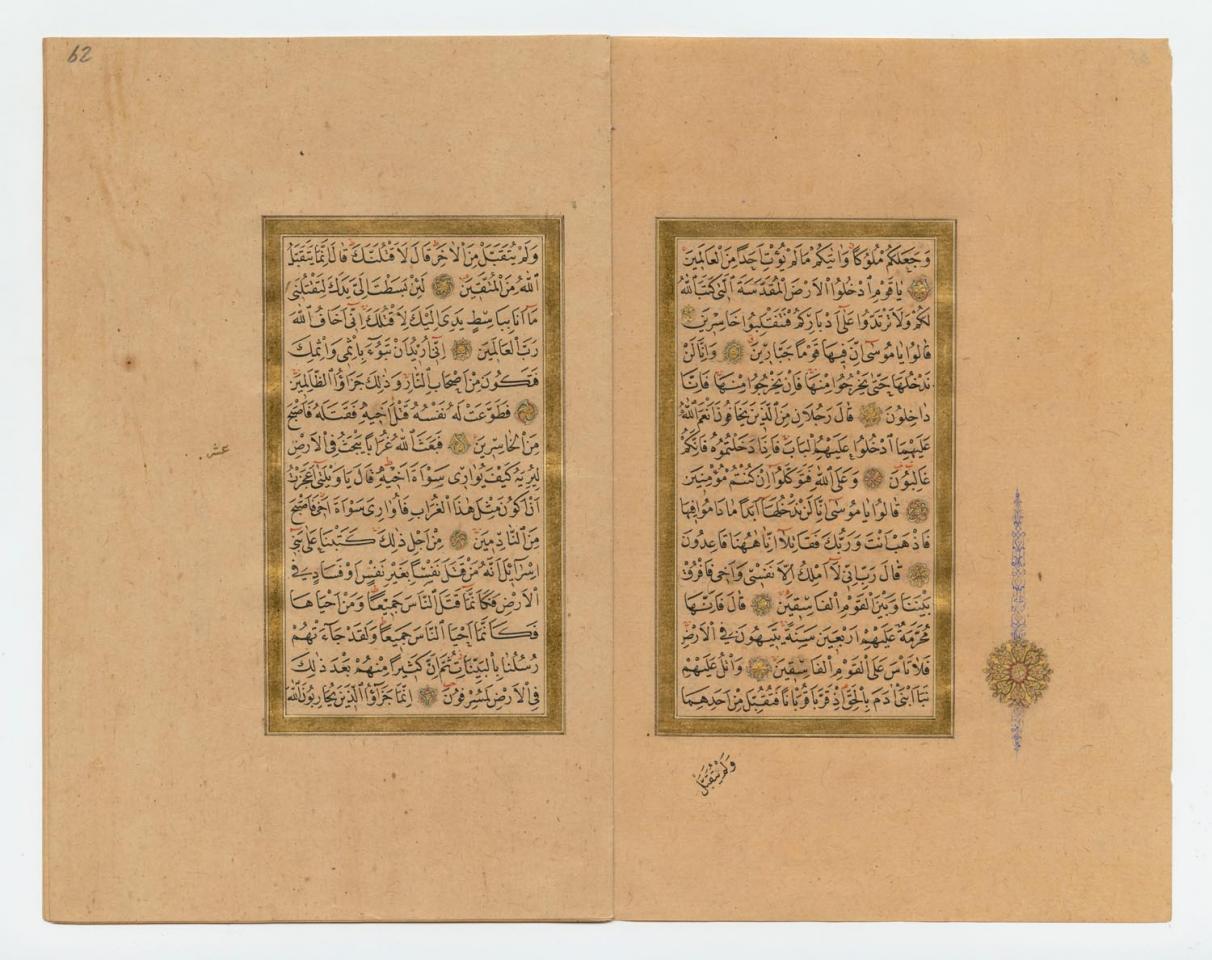 وَجَعَلَكُمْ مُلُوكًا وَاٰتٰيكُمْ مَا لَمْ يُؤْتِ اَحَدًا مِنَ الْعَالَمِينَ
يَا قَوْمِ ادْخُلُوا الْاَرْضَ الْمُقَدَّسَةَ الَّتِى كَتَبَ اللّٰهُ
لَكُمْ وَلَا تَرْتَدُّوا عَلٰى اَدْبَارِكُمْ فَتَنْقَلِبُوا خَاسِرِينَ
قَالُوا يَا مُوسٰى اِنَّ فِيهَا قَوْمًا جَبَّارِينَ وَاِنَّا لَنْ
نَدْخُلَهَا حَتّٰى يَخْرُجُوا مِنْهَا فَاِنْ يَخْرُجُوا مِنْهَا فَاِنَّا
دَاخِلُونَ قَالَ رَجُلَانِ مِنَ الَّذِينَ يَخَافُونَ اَنْعَمَ اللّٰهُ
عَلَيْهِمَا ادْخُلُوا عَلَيْهِمُ الْبَابَ فَاِذَا دَخَلْتُمُوهُ فَاِنَّكُمْ
غَالِبُونَ وَعَلَى اللّٰهِ فَتَوَكَّلُوا اِنْ كُنْتُمْ مُؤْمِنِينَ
قَالُوا يَا مُوسٰى اِنَّا لَنْ نَدْخُلَهَا اَبَدًا مَا دَامُوا فِيهَا
فَاذْهَبْ اَنْتَ وَرَبُّكَ فَقَاتِلَا اِنَّا هٰهُنَا قَاعِدُونَ
قَالَ رَبِّ اِنِّى لَا اَمْلِكُ اِلَّا نَفْسِى وَاَخِى فَافْرُقْ
بَيْنَنَا وَبَيْنَ الْقَوْمِ الْفَاسِقِينَ قَالَ فَاِنَّهَا
مُحَرَّمَةٌ عَلَيْهِمْ اَرْبَعِينَ سَنَةً يَتِيهُونَ فِى الْاَرْضِ
فَلَا تَاْسَ عَلَى الْقَوْمِ الْفَاسِقِينَ وَاتْلُ عَلَيْهِمْ
نَبَاَ ابْنَىْ اٰدَمَ بِالْحَقِّ اِذْ قَرَّبَا قُرْبَانًا فَتُقُبِّلَ مِنْ اَحَدِهِمَا
وَلَمْ يُتَقَبَّلْ
62
وَلَمْ يُتَقَبَّلْ مِنَ الْاٰخَرِ قَالَ لَاَقْتُلَنَّكَ قَالَ اِنَّمَا يَتَقَبَّلُ
اللّٰهُ مِنَ الْمُتَّقِينَ لَئِنْ بَسَطْتَ اِلَىَّ يَدَكَ لِتَقْتُلَنِى
مَا اَنَا بِبَاسِطٍ يَدِىَ اِلَيْكَ لِاَقْتُلَكَ اِنِّى اَخَافُ اللّٰهَ
رَبَّ الْعَالَمِينَ اِنِّى اُرِيدُ اَنْ تَبُوءَ بِاِثْمِى وَاِثْمِكَ
فَتَكُونَ مِنْ اَصْحَابِ النَّارِ وَذٰلِكَ جَزَاؤُا الظَّالِمِينَ
فَطَوَّعَتْ لَهُ نَفْسُهُ قَتْلَ اَخِيهِ فَقَتَلَهُ فَاَصْبَحَ
مِنَ الْخَاسِرِينَ فَبَعَثَ اللّٰهُ غُرَابًا يَبْحَثُ فِى الْاَرْضِ
لِيُرِيَهُ كَيْفَ يُوَارِى سَوْاَةَ اَخِيهِ قَالَ يَا وَيْلَتٰى اَعَجَزْتُ
اَنْ اَكُونَ مِثْلَ هٰذَا الْغُرَابِ فَاُوَارِىَ سَوْاَةَ اَخِى فَاَصْبَحَ
مِنَ النَّادِمِينَ مِنْ اَجْلِ ذٰلِكَ كَتَبْنَا عَلٰى بَنِى
اِسْرَائِلَ اَنَّهُ مَنْ قَتَلَ نَفْسًا بِغَيْرِ نَفْسٍ اَوْ فَسَادٍ فِى
الْاَرْضِ فَكَاَنَّمَا قَتَلَ النَّاسَ جَمِيعًا وَمَنْ اَحْيَاهَا
فَكَاَنَّمَا اَحْيَا النَّاسَ جَمِيعًا وَلَقَدْ جَاءَتْهُمْ
رُسُلُنَا بِالْبَيِّنَاتِ ثُمَّ اِنَّ كَثِيرًا مِنْهُمْ بَعْدَ ذٰلِكَ
فِى الْاَرْضِ لَمُسْرِفُونَ اِنَّمَا جَزَاؤُا الَّذِينَ يُحَارِبُونَ اللّٰهَ
عشر